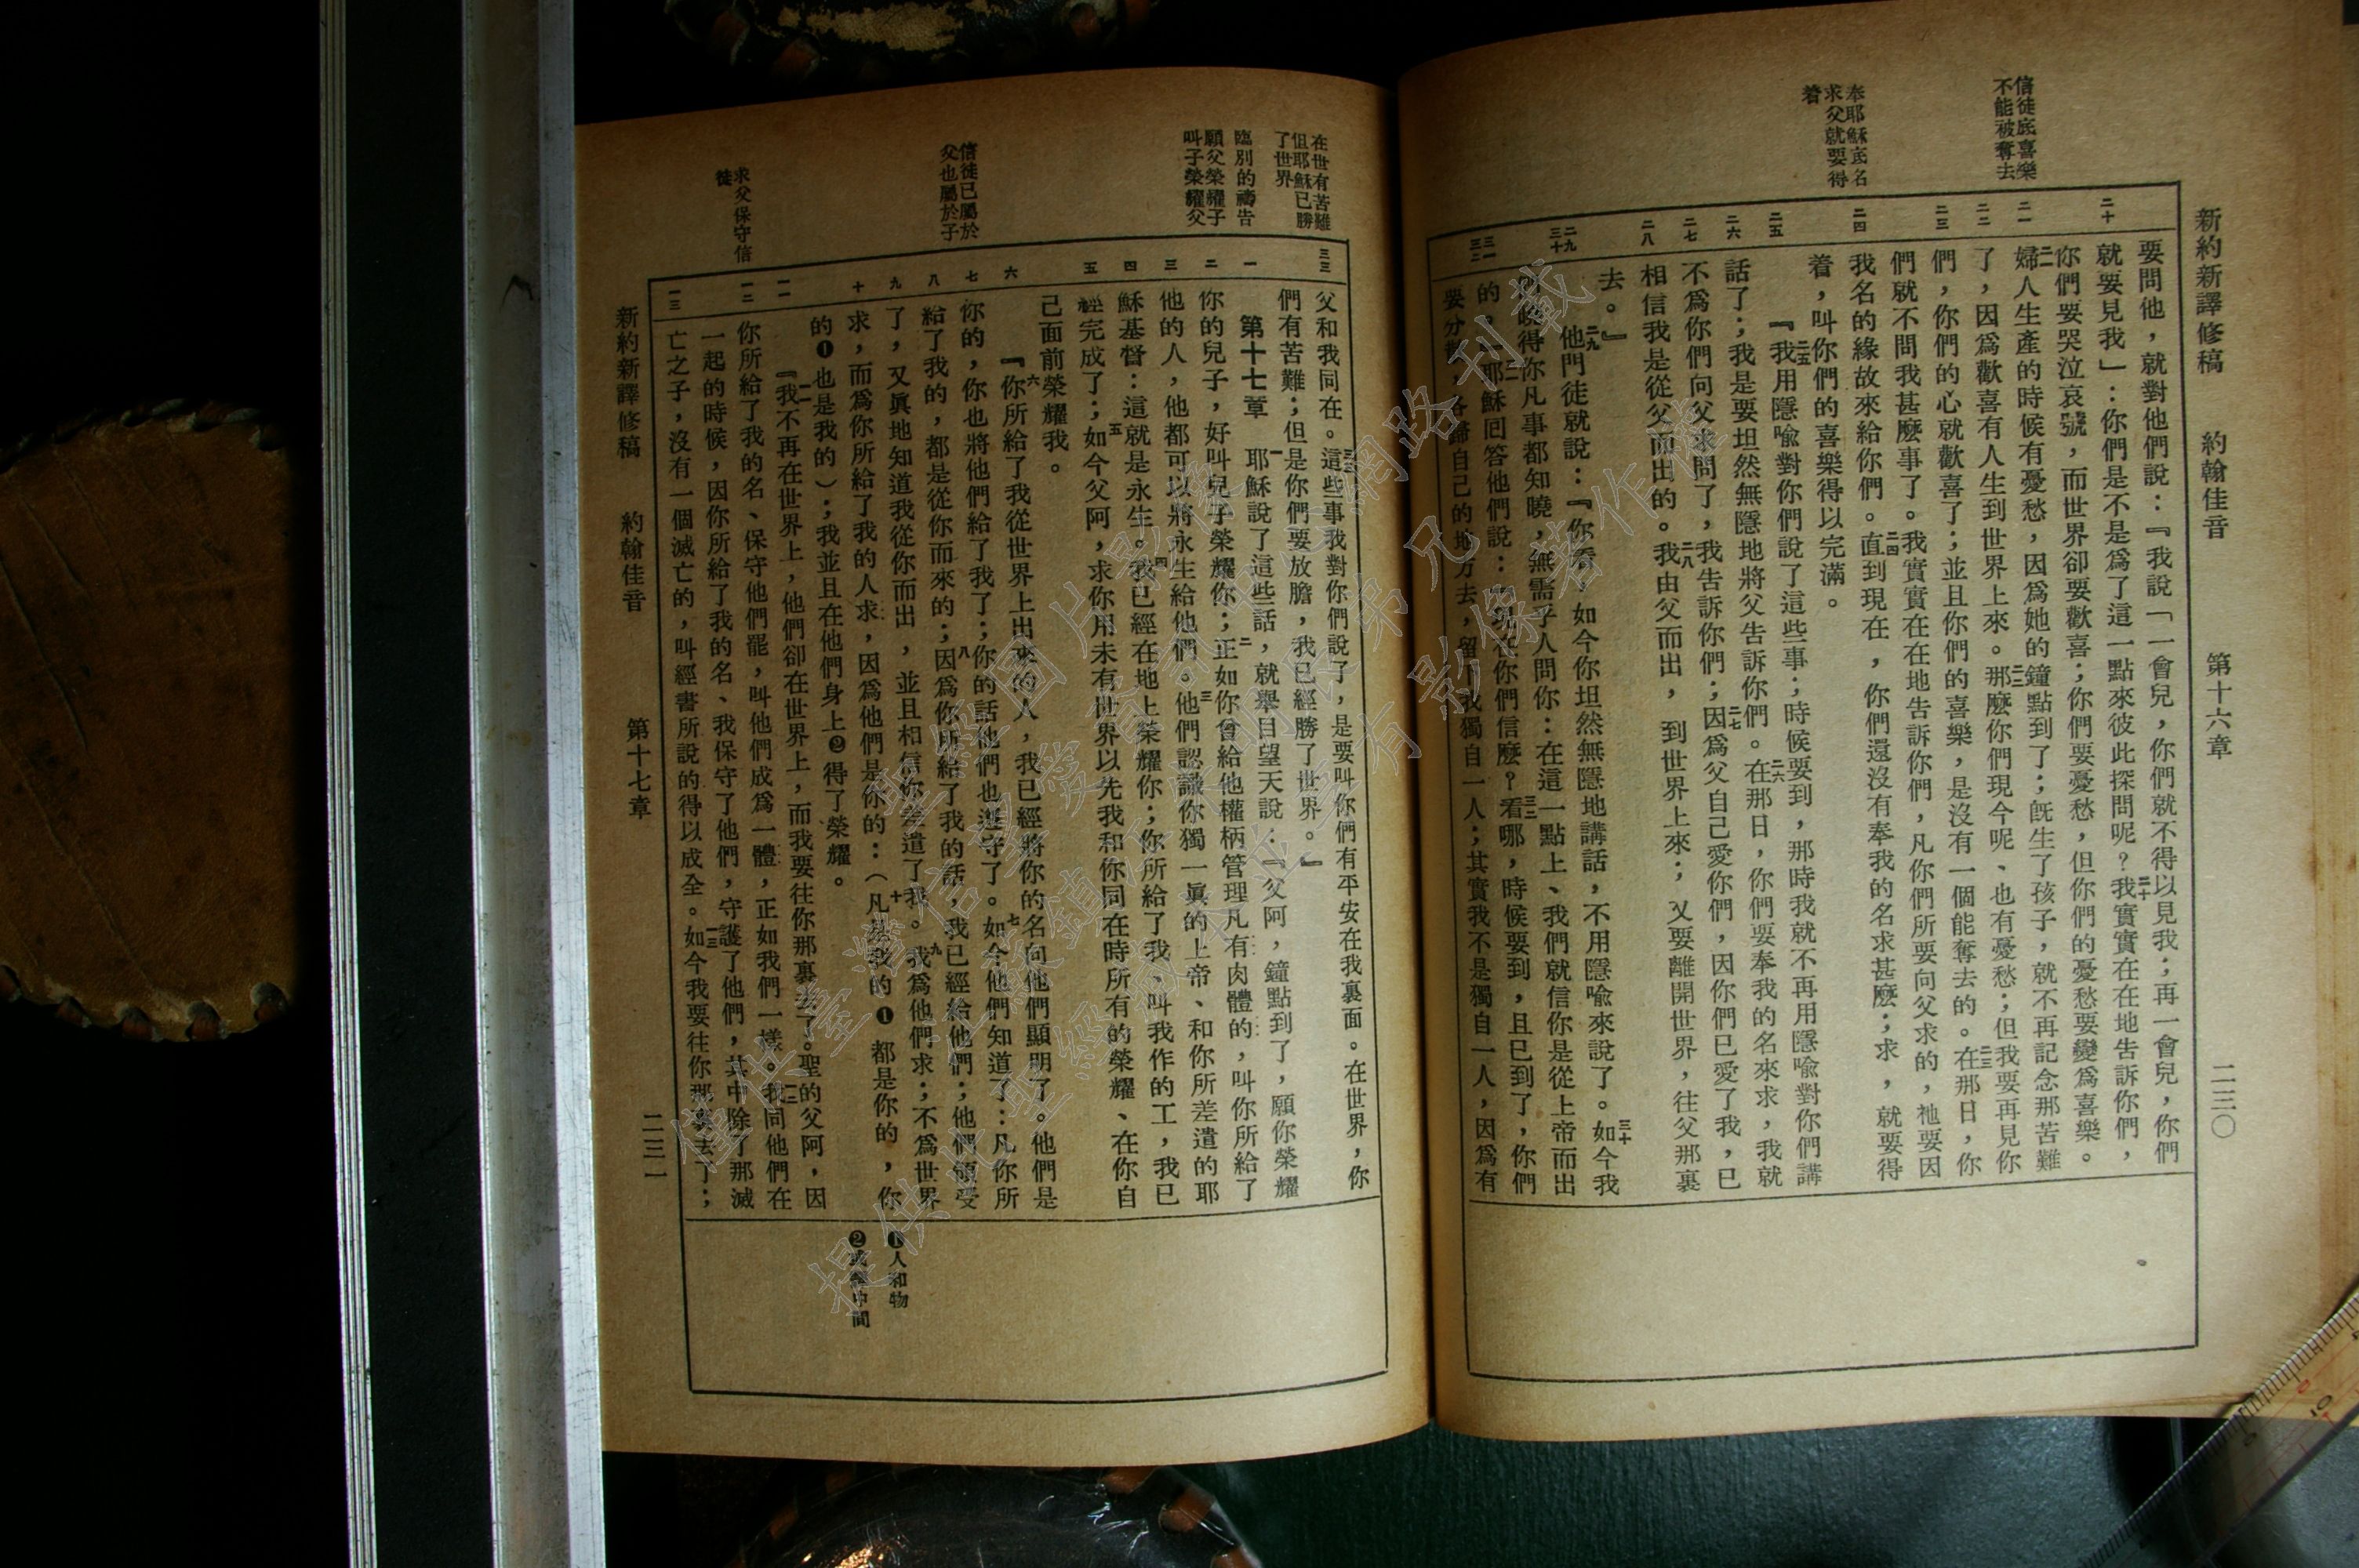 新約新譯修稿　約翰佳音　第十六章　二三〇
信徒底喜樂
不能被奪去
奉耶穌底名
求父就要得
着
二十
二一
二二
二三
二四
二五
二六
二七
二八
二九
三十
三一
三二
要問他，就對他們說：『我說「一會兒，你們就不得以見我；再一會兒，你們
就要見我」：你們是不是爲了這一點來彼此探問呢？二十我實實在在地告訴你們，
你們要哭泣哀號，而世界卻要歡喜；你們要憂愁，但你們的憂愁要變爲喜樂。
二一婦人生產的時候有憂愁，因爲她的鐘點到了；旣生了孩子，就不再記念那苦難
了，因爲歡喜有人生到世界上來。二二那麼你們現今呢、也有憂愁；但我要再見你
們，你們的心就歡喜了；並且你們的喜樂，是沒有一個能奪去的。二三在那日，你
們就不問我甚麼事了。我實實在在地告訴你們，凡你們所要向父求的，祂要因
我名的緣故來給你們。二四直到現在，你們還沒有奉我的名求甚麼；求，就要得
着，叫你們的喜樂得以完滿。
二五『我用隱喻對你們說了這些事；時候要到，那時我就不再用隱喻對你們講
話了；我是要坦然無隱地將父告訴你們。二六在那日，你們要奉我的名來求，我就
不爲你們向父求問了，我告訴你們；二七因爲父自己愛你們，因你們已愛了我，已
相信我是從父而出的。二八我由父而出，到世界上來；又要離開世界，往父那裏
去。』
二九他門徒就說：『你看，如今你坦然無隱地講話，不用隱喻來說了。三十如今我
曉得你凡事都知曉，無需乎人問你：在這一點上、我們就信你是從上帝而出
的。』三一耶穌回答他們說：『現在你們信麼？三二看哪，時候要到，且已到了，你們
要分散，各歸自己的地方去，留我獨自一人；其實我不是獨自一人，因爲有
在世有苦難
但耶穌已勝
了世界
臨別的禱告
願父榮耀子
叫子榮耀父
信徒已屬於
父也屬於子
求父保守信
徒
三三
一
二
三
四
五
六
七
八
九
十
一一
一二
一三
父和我同在。三三這些事我對你們說了，是要叫你們有平安在我裏面。在世界，你
們有苦難；但是你們要放膽，我已經勝了世界。』
第十七章　一耶穌說了這些話，就舉目望天說：『父阿，鐘點到了，願你榮耀
你的兒子，好叫兒子榮耀你；二正如你曾給他權柄管理凡有肉體的，叫你所給了
他的人，他都可以將永生給他們。三他們認識你獨一眞的上帝、和你所差遣的耶
穌基督：這就是永生。四我已經在地上榮耀你；你所給了我、叫我作的工，我已
經完成了；五如今父阿，求你用未有世界以先我和你同在時所有的榮耀、在你自
己面前榮耀我。
六『你所給了我從世界上出來的人，我已經將你的名向他們顯明了。他們是
你的，你也將他們給了我了；你的話他們也遵守了。七如今他們知道了：凡你所
給了我的，都是從你而來的；八因爲你所給了我的話，我已經給他們；他們領受
了，又眞地知道我從你而出，並且相信你差遣了我。九我爲他們求；不爲世界
求，而爲你所給了我的人求，因爲他們是你的：十（凡是我的❶都是你的，你
的❶也是我的）；我並且在他們身上❷得了榮耀。
一一『我不再在世界上，他們卻在世界上，而我要往你那裏去了。聖的父阿，因
你所給了我的名、保守他們罷，叫他們成爲一體，正如我們一樣。一二我同他們在
一起的時候，因你所給了我的名、我保守了他們，守護了他們，其中除了那滅
亡之子，沒有一個滅亡的，叫經書所說的得以成全。一三如今我要往你那裏去了；
❶人和物
❷或譯中間
新約新譯修稿　約翰佳音　第十七章　二三一